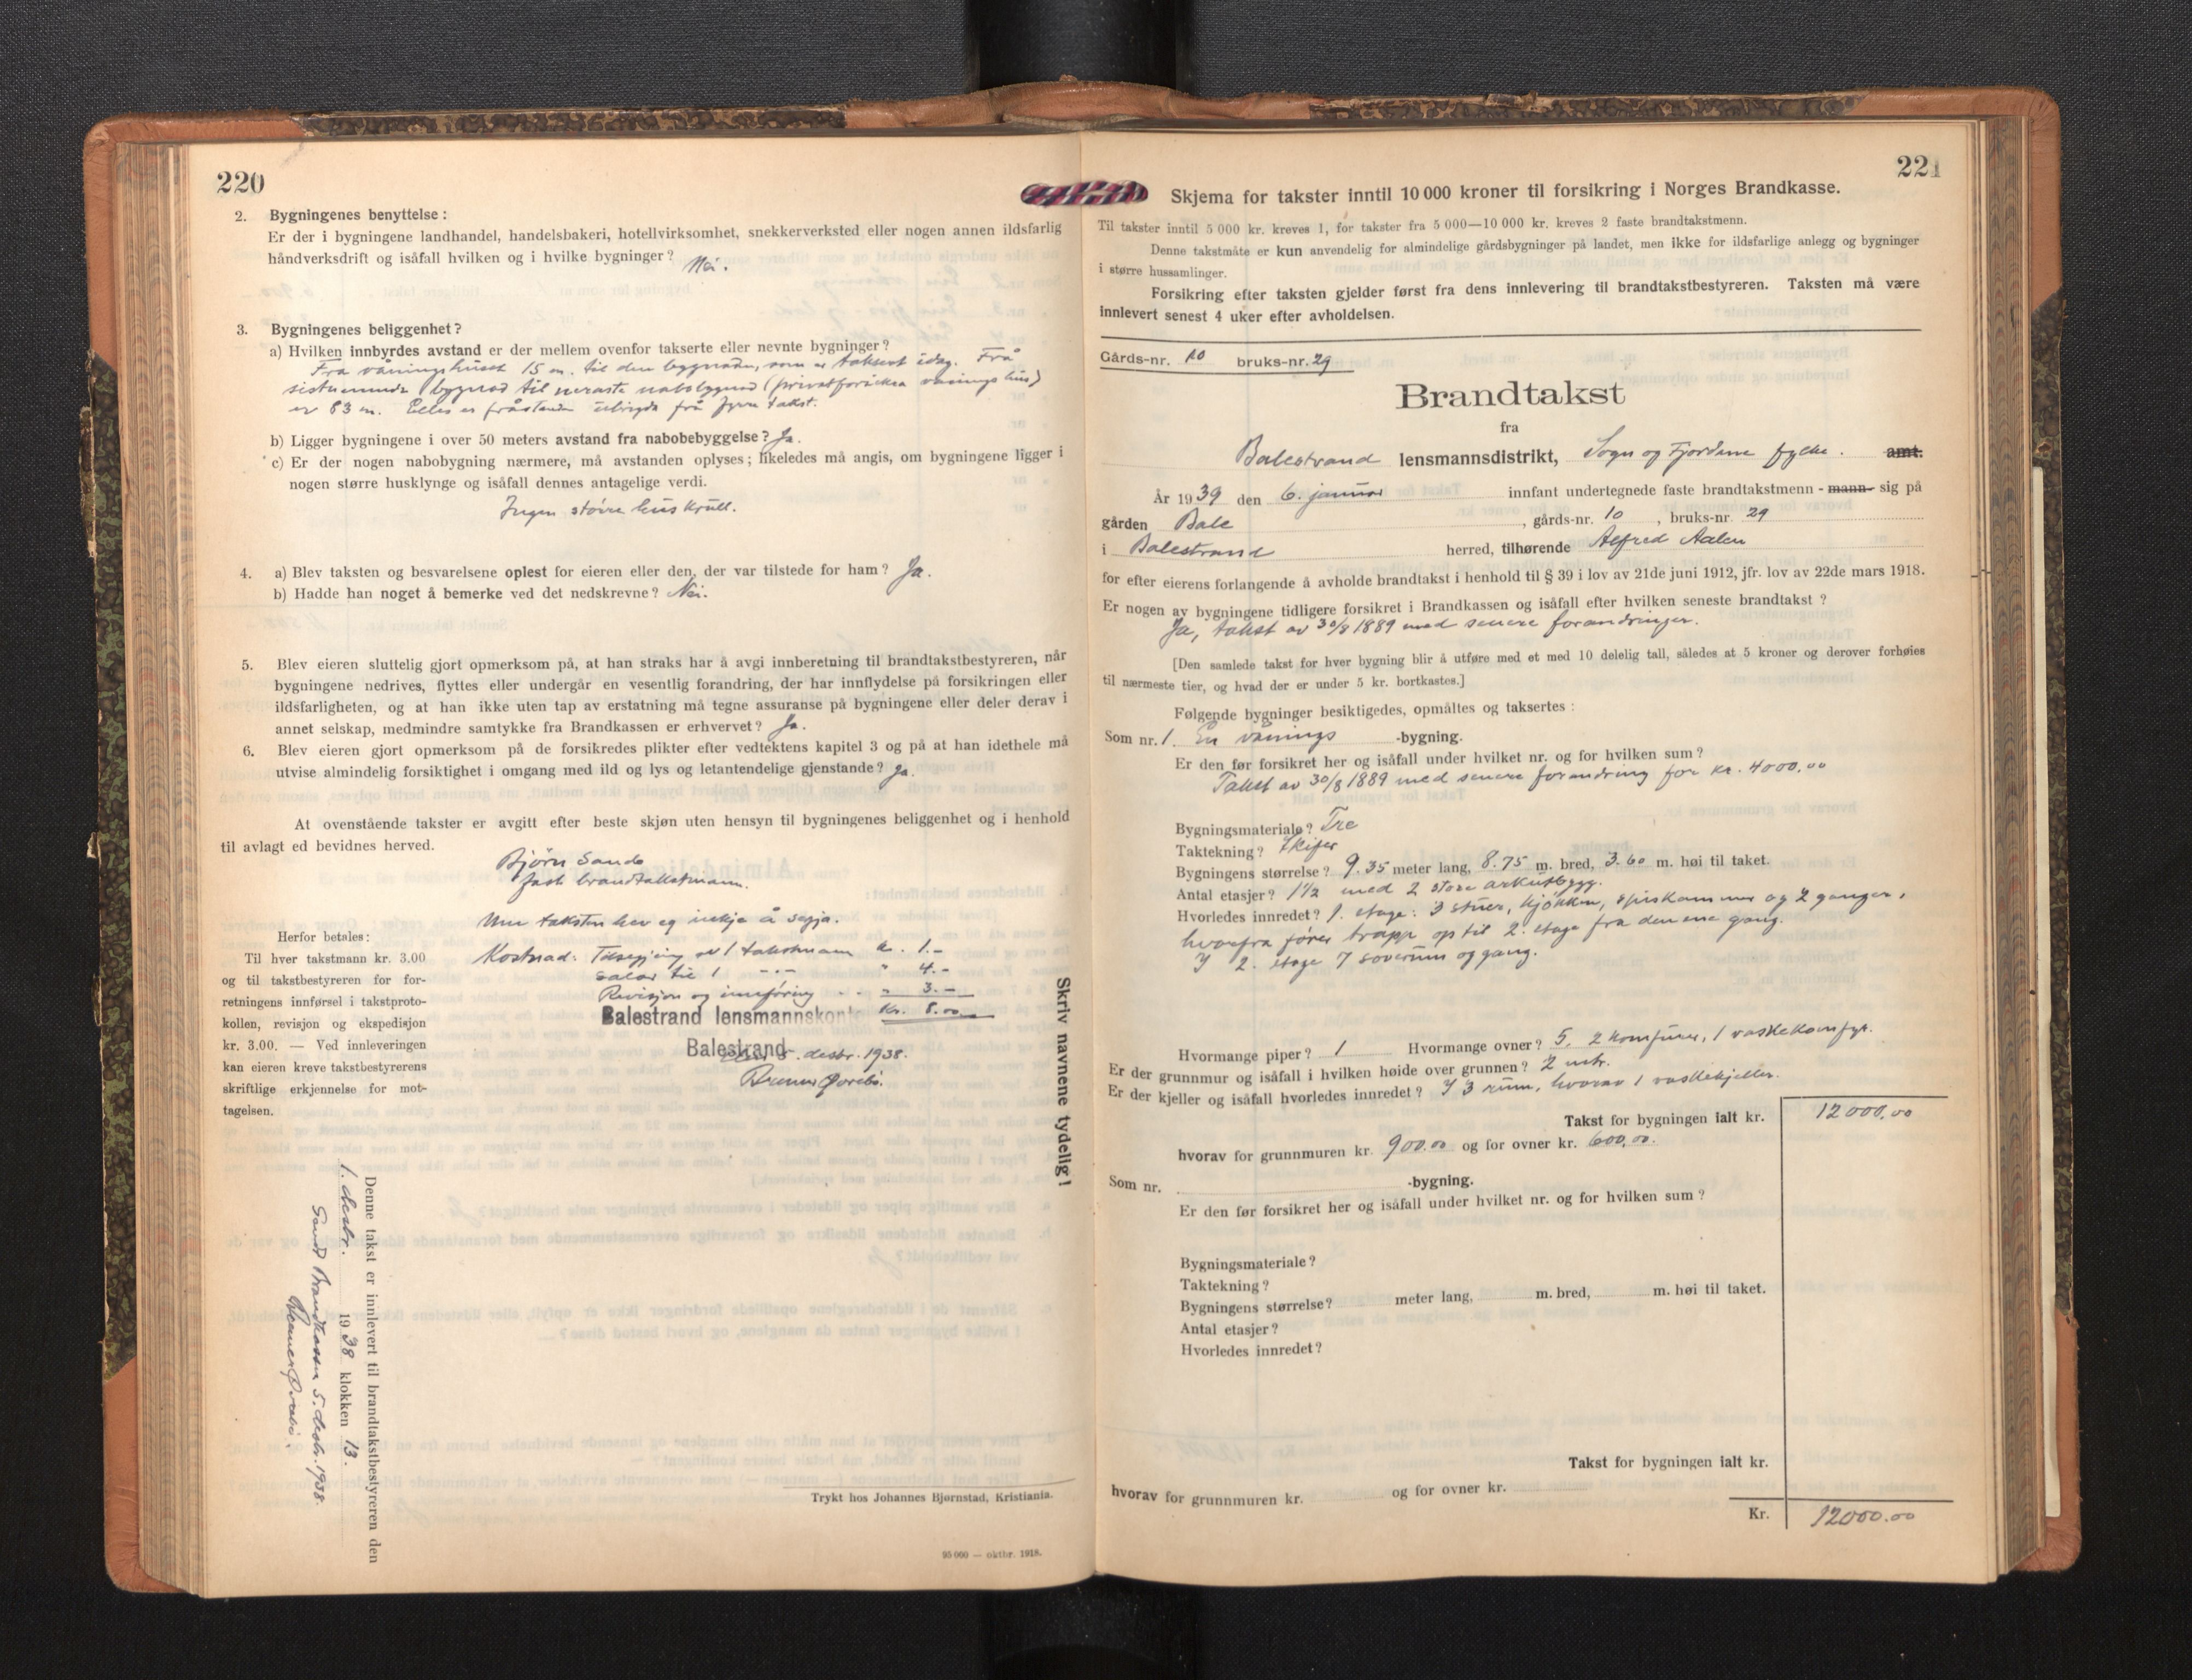 220
2. Bygningenes benyttelse:
Er der i bygningene landhandel, handelsbakeri, hotellvirksomhet, snekkerverksted eller nogen annen ildsfarlig
håndverksdrift og isåfall hvilken og i hvilke bygninger? Nei.
3. Bygningenes beliggenhet?
a) Hvilken innbyrdes avstand er der mellem ovenfor takserte eller nevnte bygninger?
Frå våningshuset 15 m. til den bygnaden, som er taksert idag. Frå
sistnemnde bygnad til næraste nabobygnad (privatforsikra våningshus)
er 83 m. Elles er fråstanden ubrigda frå fyrre takst.
b) Ligger bygningene i over 50 meters avstand fra nabobebyggelse? Ja.
c) Er der nogen nabobygning nærmere, må avstanden oplyses; likeledes må angis, om bygningene ligger i
nogen større husklynge og isåfall dennes antagelige verdi.
Ingen større huskrull.
4. a) Blev taksten og besvarelsene oplest for eieren eller den, der var tilstede for ham? Ja.
b) Hadde han noget å bemerke ved det nedskrevne? Nei.
5. Blev eieren sluttelig gjort opmerksom på, at han straks har å avgi innberetning til brandtakstbestyreren, når
bygningene nedrives, flyttes eller undergår en vesentlig forandring, der har innflydelse på forsikringen eller
ildsfarligheten, og at han ikke uten tap av erstatning må tegne assuranse på bygningene eller deler derav i
annet selskap, medmindre samtykke fra Brandkassen er erhvervet? Ja.
6. Blev eieren gjort opmerksom på de forsikredes plikter efter vedtektens kapitel 3 og på at han idethele må
utvise almindelig forsiktighet i omgang med ild og lys og letantendelige gjenstande? Ja.
At ovenstående takster er avgitt efter beste skjøn uten hensyn til bygningenes beliggenhet og i henhold
til avlagt ed bevidnes herved.
Bjørn Sande
fast brandtakstmann.
Um taksten hev eg inkje å segja.
Herfor betales:
Til hver takstmann kr. 3.00
og til takstbestyreren for for-
retningens innførsel i takstproto-
kollen, revisjon og ekspedisjon
kr. 3.00. — Ved innleveringen
kan eieren kreve takstbestyrerens
skriftlige erkjennelse for mot-
tagelsen.
Kostnad: Tilsegjing av 1 takstmann kr. 1.-
Salær til 1 -"- " 4.-
Revisjon og innføring " 3.-
Kr. 8.00
Balestrand lensmannskontor
Balestrand 5. desbr. 1938.
Denne takst er innlevert til brandtakstbestyreren den
1. desbr. 1938 klokken 13.
Sendt Brandkassen 5. desbr. 1938.
Skriv navnene tydelig!
Trykt hos Johannes Bjørnstad, Kristiania.
95 000 — oktbr. 1918.
221
Skjema for takster inntil 10 000 kroner til forsikring i Norges Brandkasse.
Til takster inntil 5 000 kr. kreves 1, for takster fra 5 000—10 000 kr. kreves 2 faste brandtakstmenn.
Denne takstmåte er kun anvendelig for almindelige gårdsbygninger på landet, men ikke for ildsfarlige anlegg og bygninger
i større hussamlinger.
Forsikring efter taksten gjelder først fra dens innlevering til brandtakstbestyreren. Taksten må være
innlevert senest 4 uker efter avholdelsen.
Gårds-nr. 10 bruks-nr. 29
Brandtakst
fra
Balestrand lensmannsdistrikt, Sogn og Fjordane fylke. amt.
År 1939 den 6. januar innfant undertegnede faste brandtakstmenn - mann - sig på
gården Bale, gårds-nr. 10, bruks-nr. 29
i Balestrand herred, tilhørende Alfred Aalen
for efter eierens forlangende å avholde brandtakst i henhold til § 39 i lov av 21de juni 1912, jfr. lov av 22de mars 1918.
Er nogen av bygningene tidligere forsikret i Brandkassen og isåfall efter hvilken seneste brandtakst?
Ja, takst av 30/8 1889 med senere forandringer.
[Den samlede takst for hver bygning blir å utføre med et med 10 delelig tall, således at 5 kroner og derover forhøies
til nærmeste tier, og hvad der er under 5 kr. bortkastes.]
Følgende bygninger besiktigedes, opmåltes og taksertes:
Som nr. 1. En vånings -bygning.
Er den før forsikret her og isåfall under hvilket nr. og for hvilken sum?
Takst av 30/8 1889 med senere forandring for kr. 4000.00
Bygningsmateriale? Tre
Taktekning? Skifer
Bygningens størrelse? 9.35 meter lang, 8.75 m. bred, 3.60 m. høi til taket.
Antal etasjer? 1½ med 2 store arkutbygg.
Hvorledes innredet? 1. etage: 3 stuer, kjøkken, spiskammer og 2 ganger,
hvorfra fører trapp op til 2. etage fra den ene gang.
I 2. etage 7 soverum og gang.
Hvormange piper? 1 Hvormange ovner? 5, 2 komfurer, 1 vaskekomfyr.
Er der grunnmur og isåfall i hvilken høide over grunnen? 2 mtr.
Er der kjeller og isåfall hvorledes innredet? I 3 rum, hvorav 1 vaskekjeller.
Takst for bygningen ialt kr. 12000.00
hvorav for grunnmuren kr. 900.00 og for ovner kr. 600.00.
Som nr. -bygning.
Er den før forsikret her og isåfall under hvilket nr. og for hvilken sum?
Bygningsmateriale?
Taktekning?
Bygningens størrelse? meter lang, m. bred, m. høi til taket.
Antal etasjer?
Hvorledes innredet?
Takst for bygningen ialt kr.
hvorav for grunnmuren kr. og for ovner kr.
Kr. 12000.00